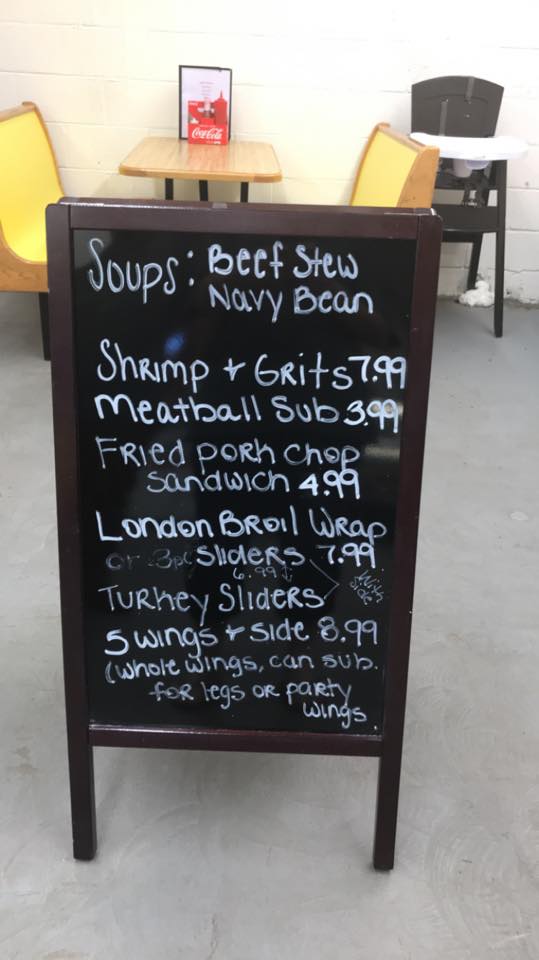 Coca-Cola
Soups: Beef Stew
Navy Bean
Shrimp + Grits 7.99
Meatball Sub 3.99
Fried pork chop
sandwich 4.99
London Broil Wrap
or 3pc Sliders 7.99
6.99
Turkey Sliders
with side
5 wings + side 8.99
(whole wings, can sub.
for legs or party
wings